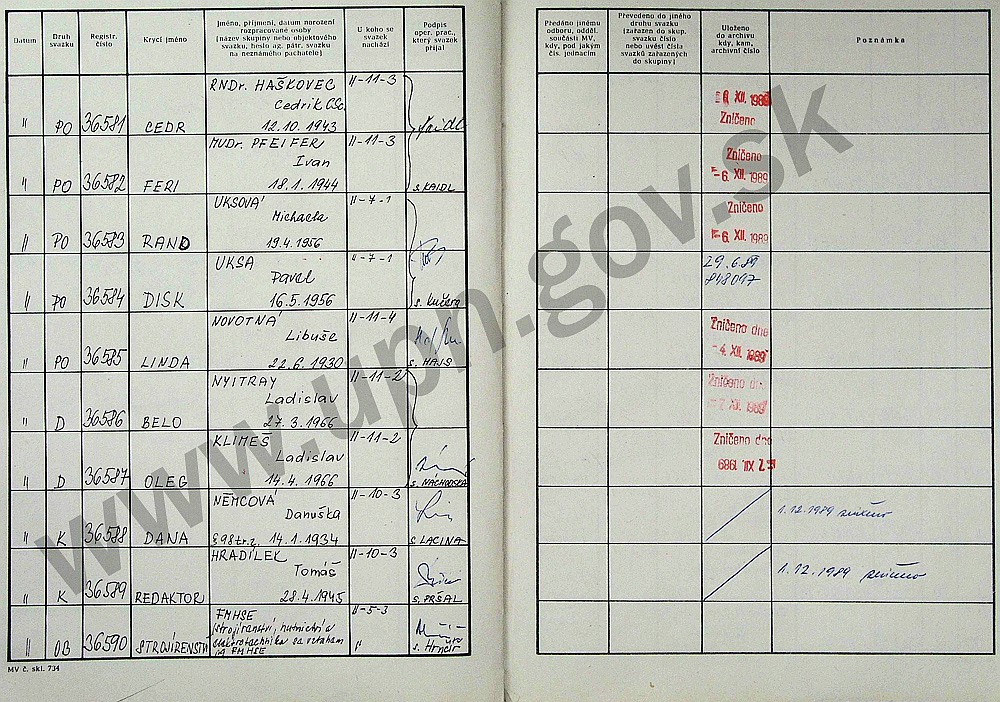 Datum
Druh svazku
Registr. číslo
Krycí jméno
Jméno, příjmení, datum narození
rozpracované osoby
(název skupiny nebo objektového
svazku, heslo ag. pátr. svazku
na neznámého pachatele)
U koho se
svazek
nachází
Podpis
oper. prac.,
který svazek
přijal
Předáno jinému
odboru, odděl.
součásti MV,
kdy, pod jakým
čís. jednacím
Převedeno do jiného
druhu svazku
(zařazen do skup.
svazku číslo
nebo uvést čísla
svazků zařazených
do skupiny)
Uloženo
do archivu
kdy, kam,
archivní číslo
Poznámka
RNDr. HAŠKOVEC II-11-3
Cedrik CSc.
" PO 36581 CEDR 12.10.1943
6. XII. 1989
Zničeno
MUDr. PFEIFER II-11-3
Ivan
" PO 36582 FERI 18.1.1944 s. KAIDL
Zničeno
-6. XII. 1989
UKSOVÁ II-7-1
Michaela
" PO 36583 RAND 19.4.1956
Zničeno
-6. XII. 1989
UKSA II-7-1
Pavel
" PO 36584 DISK 16.5.1956 s. Kučera
29.6.89
848097
NOVOTNÁ II-11-4
Libuše
" PO 36585 LINDA 22.6.1930 s. HAJS
Zničeno dne
-4. XII. 1989
NYITRAY II-11-2
Ladislav
" D 36586 BELO 27.3.1966
Zničeno dne
XII. 1989
KLIMEŠ II-11-2
Ladislav
" D 36587 OLEG 14.4.1966 s. NÁCHODSKÁ
Zničeno dne
7. XII. 1989
NĚMCOVÁ II-10-3
Danuška
" K 36588 DANA § 98 tr.z. 14.1.1934 s LACINA
1.12.1989 zničeno
HRADÍLEK II-10-3
Tomáš
" K 36589 REDAKTOR 28.4.1945 s. PRŠAL
1.12.1989 zničeno
FMHSE II-5-3
(strojírenství, hutnictví a
elektrotechnika se vztahem
" OB 36590 STROJÍRENSTVÍ FMHSE " s. Hrnčíř
MV č. skl. 734
www.upn.gov.sk